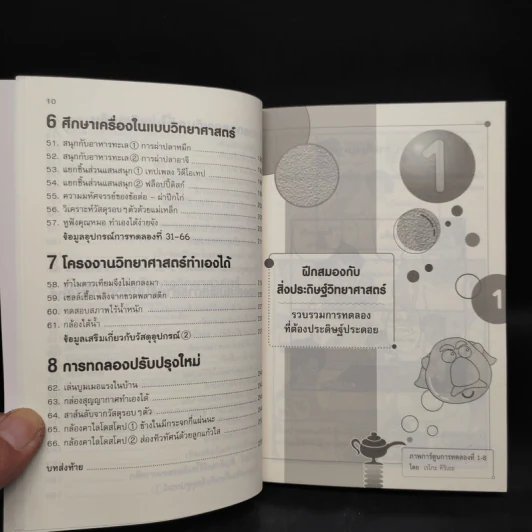 10
6 ศึกษาเครื่องในแบบวิทยาศาสตร์
51. สนุกกับอาหารทะเล① การผ่าปลาหมึก
52. สนุกกับอาหารทะเล② การผ่าปลาอาจิ
53. แยกชิ้นส่วนแสนสนุก① เทปเพลง วิดีโอเทป
54. แยกชิ้นส่วนแสนสนุก② ฟล็อปปี้ดิสก์
55. ความมหัศจรรย์ของข้อต่อ – ผ่าปีกไก่
56. วิเคราะห์วัสดุรอบๆตัวด้วยแม่เหล็ก
57. หูฟังคุณหมอ ทำเองได้ง่ายจัง
ข้อมูลอุปกรณ์การทดลองที่ 31-66
7 โครงงานวิทยาศาสตร์ทำเองได้
58. ทำไมดาวเทียมจึงไม่ตกลงมา
59. เซลล์เชื้อเพลิงจากขวดพลาสติก
60. ทดสอบสภาพไร้น้ำหนัก
61. กล้องใต้น้ำ
ข้อมูลเสริมเกี่ยวกับวัสดุอุปกรณ์②
8 การทดลองปรับปรุงใหม่
62. เล่นบูมเมอแรงในบ้าน
63. กล่องสุญญากาศทำเองได้
64. สาส์นลับจากวัสดุรอบๆตัว
65. กล้องคาไลโดสโคป① ข้างในมีกระจกกี่แผ่นนะ
66. กล้องคาไลโดสโคป② ส่องทิวทัศน์ด้วยลูกแก้วใส
บทส่งท้าย
1
ฝึกสมองกับ
สิ่งประดิษฐ์วิทยาศาสตร์
รวบรวมการทดลอง
ที่ต้องประดิษฐ์ประดอย
1
ภาพการ์ตูนการทดลองที่ 1-8
โดย